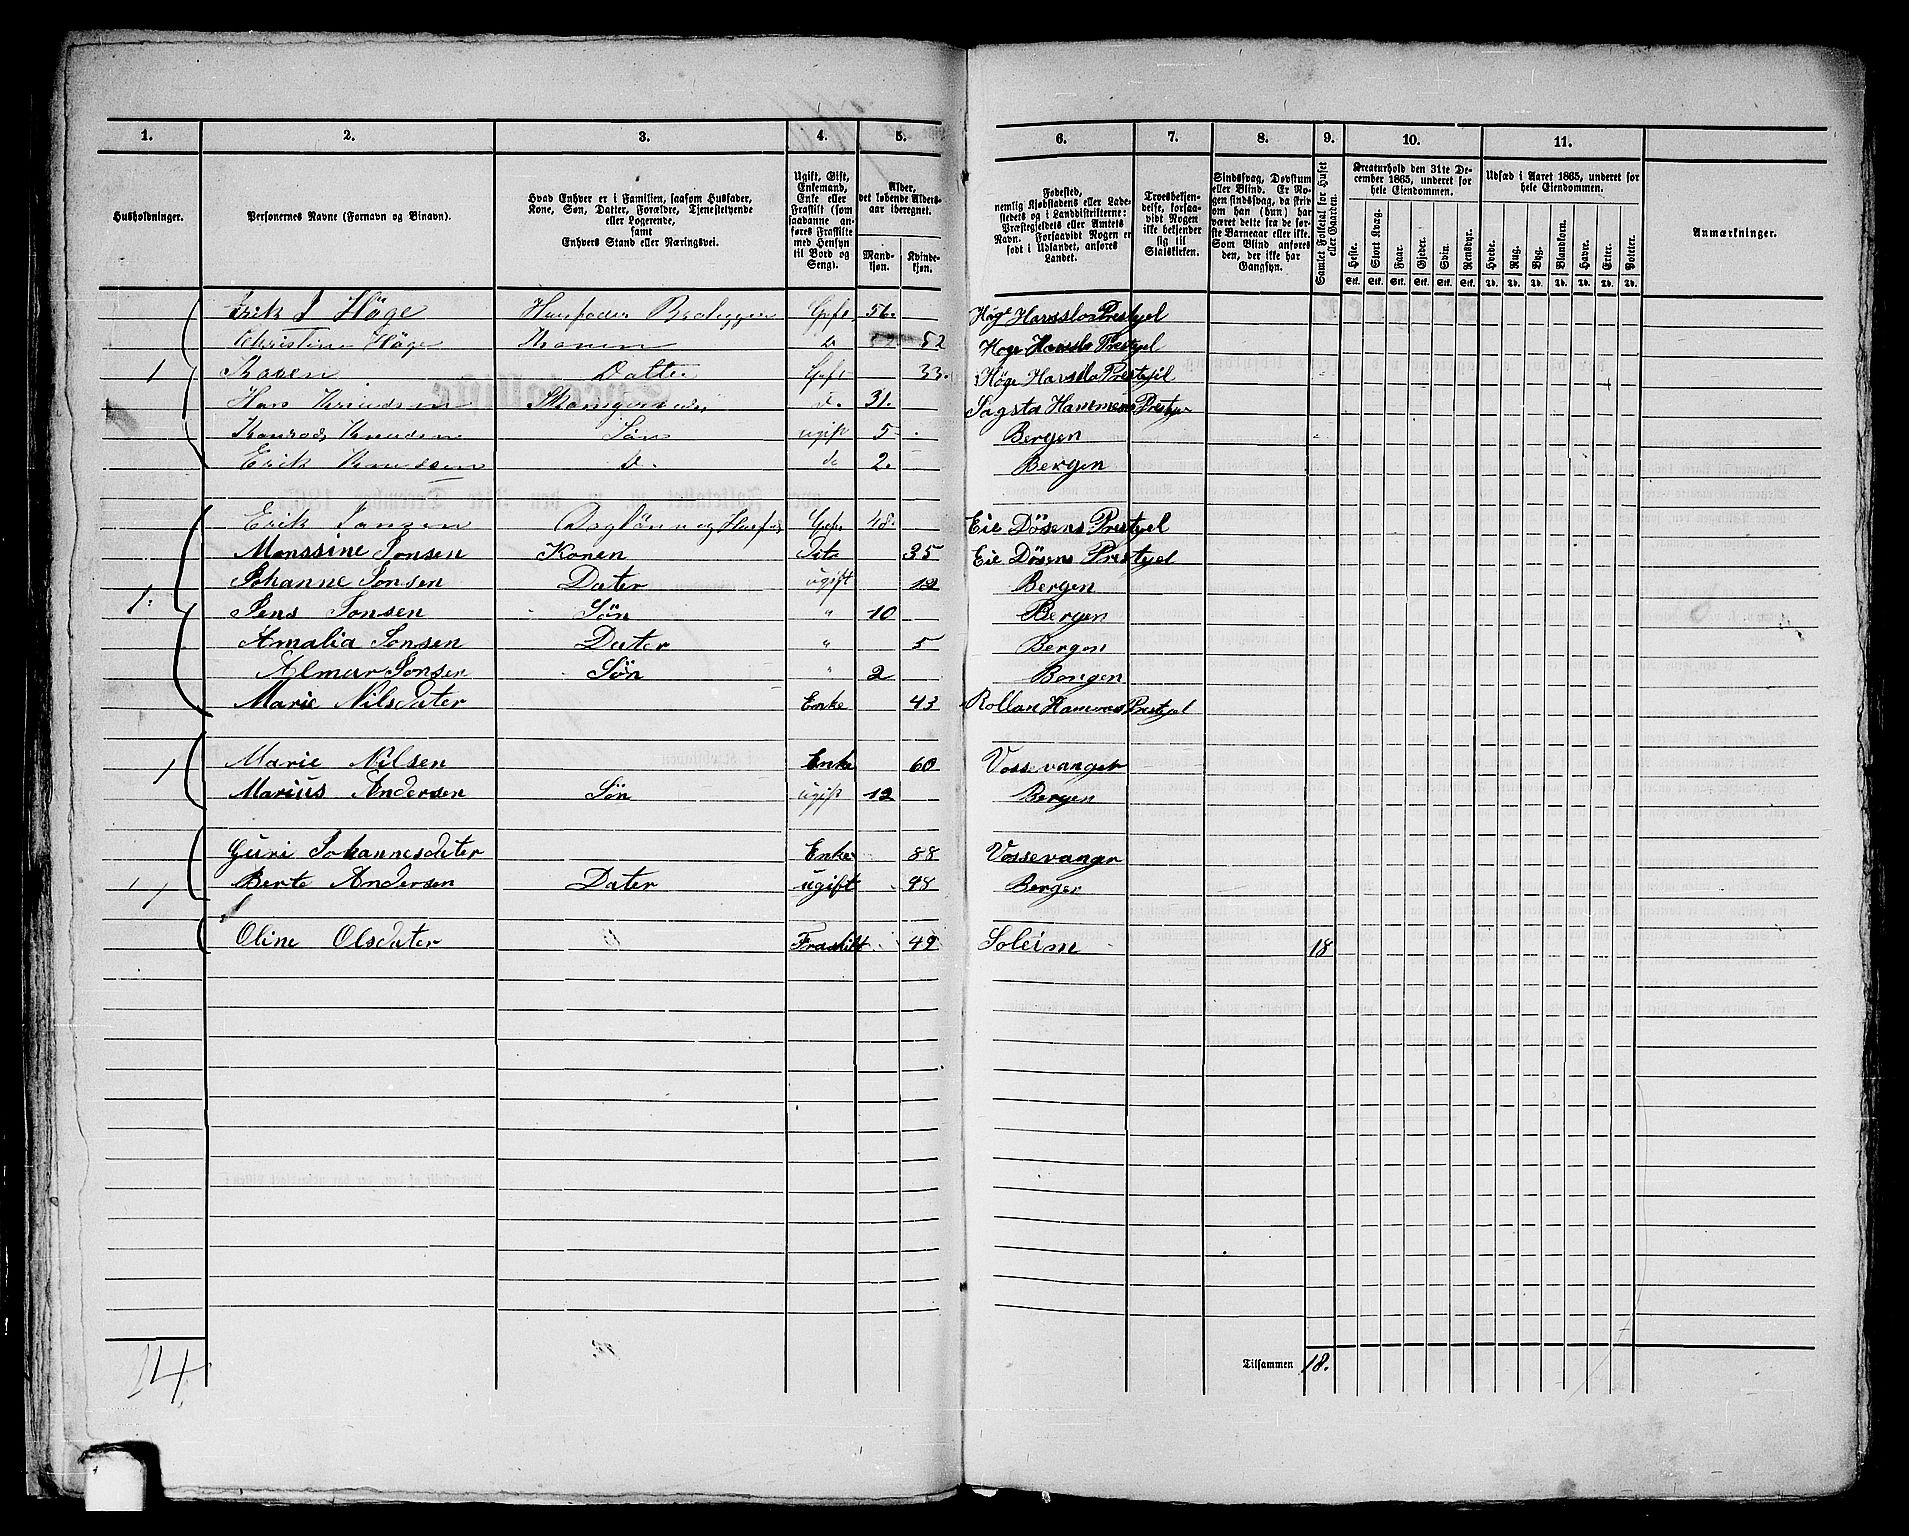 1. 2. 3. 4. 5. 6. 7. 8. 9. 10. 11.
Husholdninger.
Personernes Navne (Fornavn og Binavn).
Hvad Enhver er i Familien, saasom Husfader,
Kone, Søn, Datter, Forældre, Tjenestetyende
eller Logerende,
samt
Enhvers Stand eller Næringsvei.
Ugift, Gift,
Enkemand,
Enke eller
Fraskilt (som
saadanne an-
føres Fraskilte
med Hensyn
til Bord og
Seng).
Alder,
det løbende Alders-
aar iberegnet.
Mand-
kjøn.
Kvinde-
kjøn.
Fødested,
nemlig Kjøbstadens eller Lade-
stedets og i Landdistrikterne:
Præstegjeldets eller Amtets
Navn. Forsaavidt Nogen er
født i Udlandet, anføres
Landet.
Troesbekjen-
delse, forsaa-
vidt Nogen
ikke bekjender
sig til
Statskirken.
Sindssvag, Døvstum
eller Blind. Er No-
gen sindssvag, da skriv
om han (hun) har
været dette fra de før-
ste Barneaar eller ikke.
Som Blind anføres
den, der ikke har
Gangsyn.
Samlet Folketal for Huset
eller Gaarden.
Kreaturhold den 31te De-
cember 1865, underet for
hele Eiendommen.
Heste. Stort Kvæg. Faar. Gjeder. Svin. Rensdyr.
Stk. Stk. Stk. Stk. Stk. Stk.
Udsæd i Aaret 1865, underet for
hele Eiendommen.
Hvede. Rug. Byg. Blandkorn. Havre. Erter. Poteter.
Td. Td. Td. Td. Td. Td. Td.
Anmærkninger.
Erik J Höge Husfader Gift 56. Höge Havslo Prestjel
Christine Höge Konen D 52 Hoge Havslo Prestjel
1 Karen Datter Gift 33. Höge Havslo Prestjel
Han Knudsen d. 31. Hammens Prestje
Konrad Knudsen Sön ugift 5 Bergen
Erik Knudsen D. do 2. Bergen
Erik Jansen Gift 48. Eie Dösens Prestjel
Monssine Jonsen Konen Dito 35 Eie Dösens Prestjel
Johanne Jonsen Dater ugift 12 Bergen
1: Jens Jonsen Sön " 10 Bergen
Amalia Jonsen Dater " 5 Bergen
Almar Jonsen Sön " 2 Bongen
Marie Nilsdater Enke 43 Rollan Hamvas Prestjel
1 Marie Nilsen Enke 60 Vossevanger
Marius Andersen Sön ugift 12 Bergen
Guri Johannesdater Enke 88 Vossevanger
1 Berte Andersen Dater ugift 48 Berger
Oline Olsdater Fraskilt 49 Soleim 18
14
Tilsammen 18.